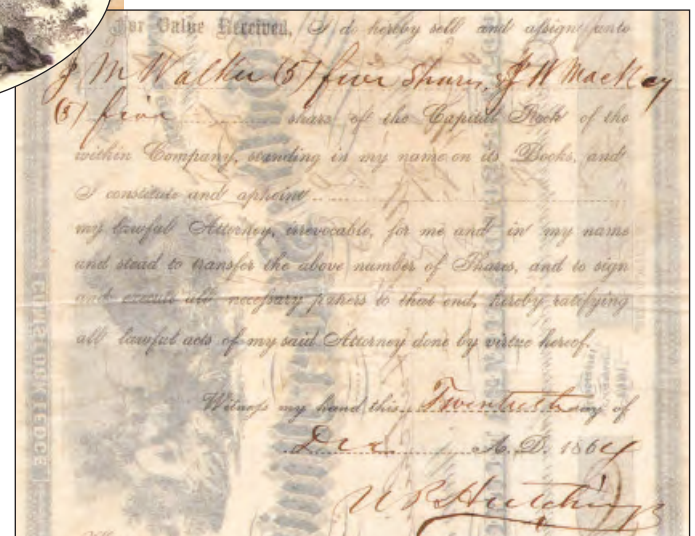 For Value Received, I do hereby sell and assign unto
J M Walker (5) five Shares, J W Mackey
(5) five share of the Capital Stock of the
within Company, standing in my name on its Books, and
I constitute and appoint
my lawful Attorney, irrevocable, for me and in my name
and stead to transfer the above number of Shares, and to sign
and execute all necessary papers to that end, hereby ratifying
all lawful acts of my said Attorney done by virtue hereof.
Witness my hand this Twentieth day of
Dec A.D. 1864
Hutchings